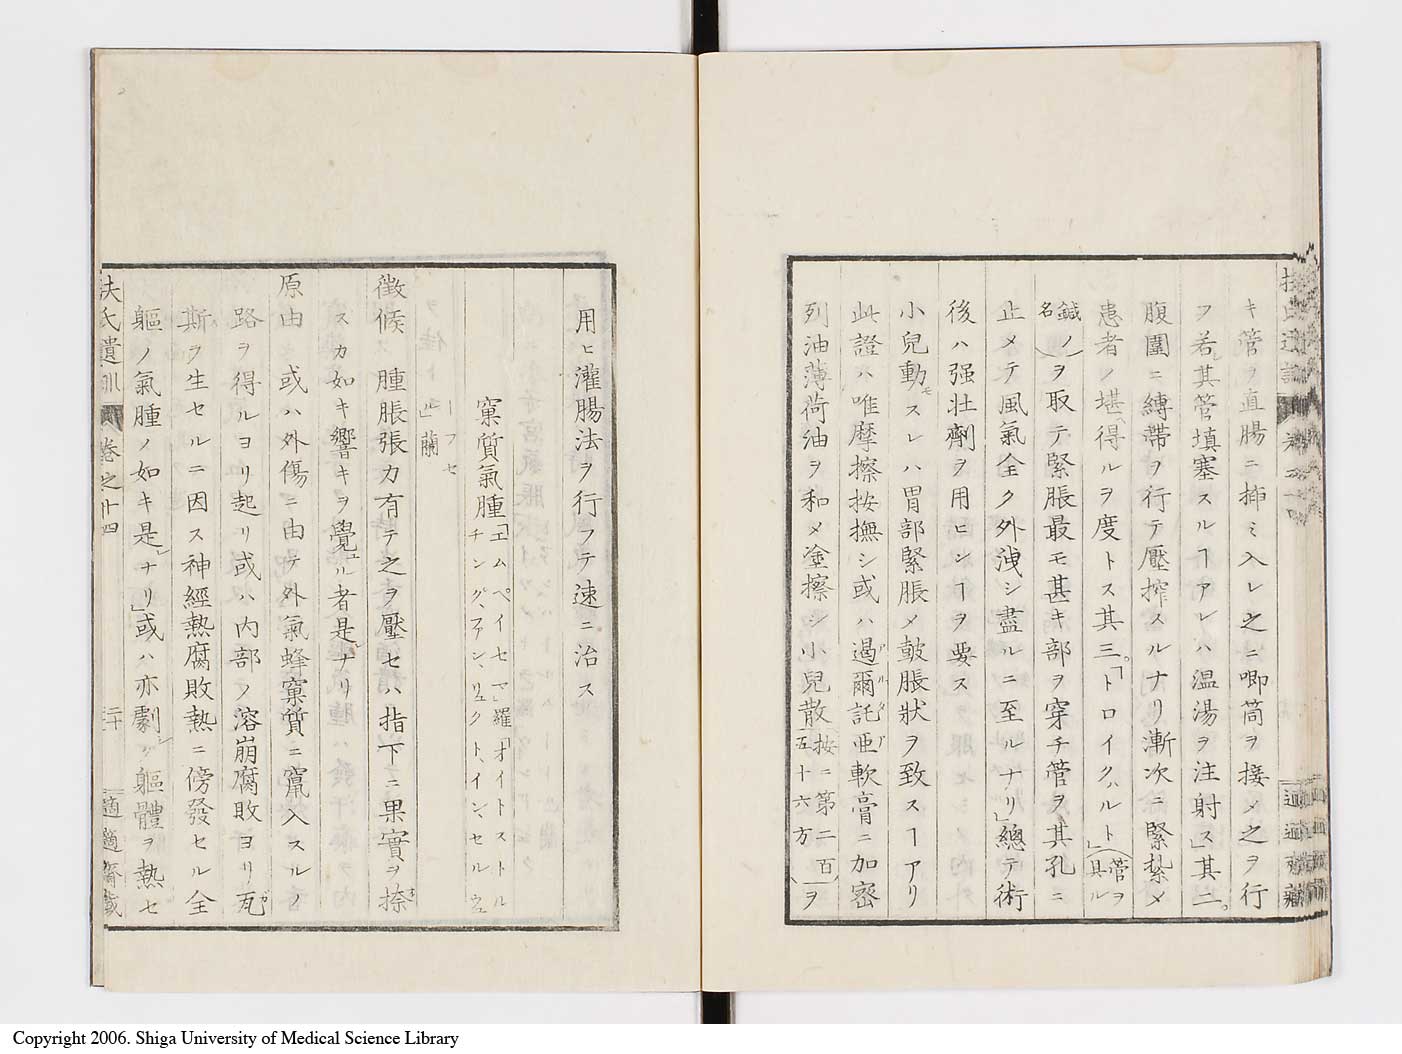 キ管ヲ直腸ニ挿ミ入レ之ニ喞筒ヲ接メ之ヲ行
ヲ若其管填塞スルヿアレハ温湯ヲ注射ス」其二。
腹圍ニ縛帶ヲ行テ壓搾スルナリ漸次ニ緊紮メ
患者ノ堪得ルヲ度トス其三。「トロイクハルト」(管ヲ具ル
鍼ノ名)ヲ取テ緊脹最モ甚キ部ヲ穿チ管ヲ其孔ニ
止メテ風氣全ク外洩シ盡ルニ至ルナリ」總テ術
後ハ强壯劑ヲ用ヒンヿヲ要ス
小兒動モスレハ胃部緊脹メ皷脹狀ヲ致スヿアリ
此證ハ唯摩擦按撫シ或ハ遏爾託亜軟膏ニ加密
列油薄荷油ヲ和メ塗擦シ小兒散(按ニ第二百五十六方)ヲ
用ヒ灌腸法ヲ行フテ速ニ治ス
窠質氣腫「エムペイセマ」羅「オイトストルチング、ファン、リュクト、イン、セルウェ
ーフセ」蘭
徴候 腫脹張力有テ之ヲ壓セハ指下ニ果實ヲ捺
スカ如キ響キヲ覺ユル者是ナリ
原由 或ハ外傷ニ由テ外氣蜂窠質ニ竄入スルノ
路ヲ得ルヨリ起リ或ハ内部ノ溶崩腐敗ヨリ瓦
斯ヲ生セルニ因ス神經熱腐敗熱ニ傍發セル全
軀ノ氣腫ノ如キ是ナリ」或ハ亦劇シク軀體ヲ熱セ
扶氏遺訓 卷之十四 二十 適適齋藏